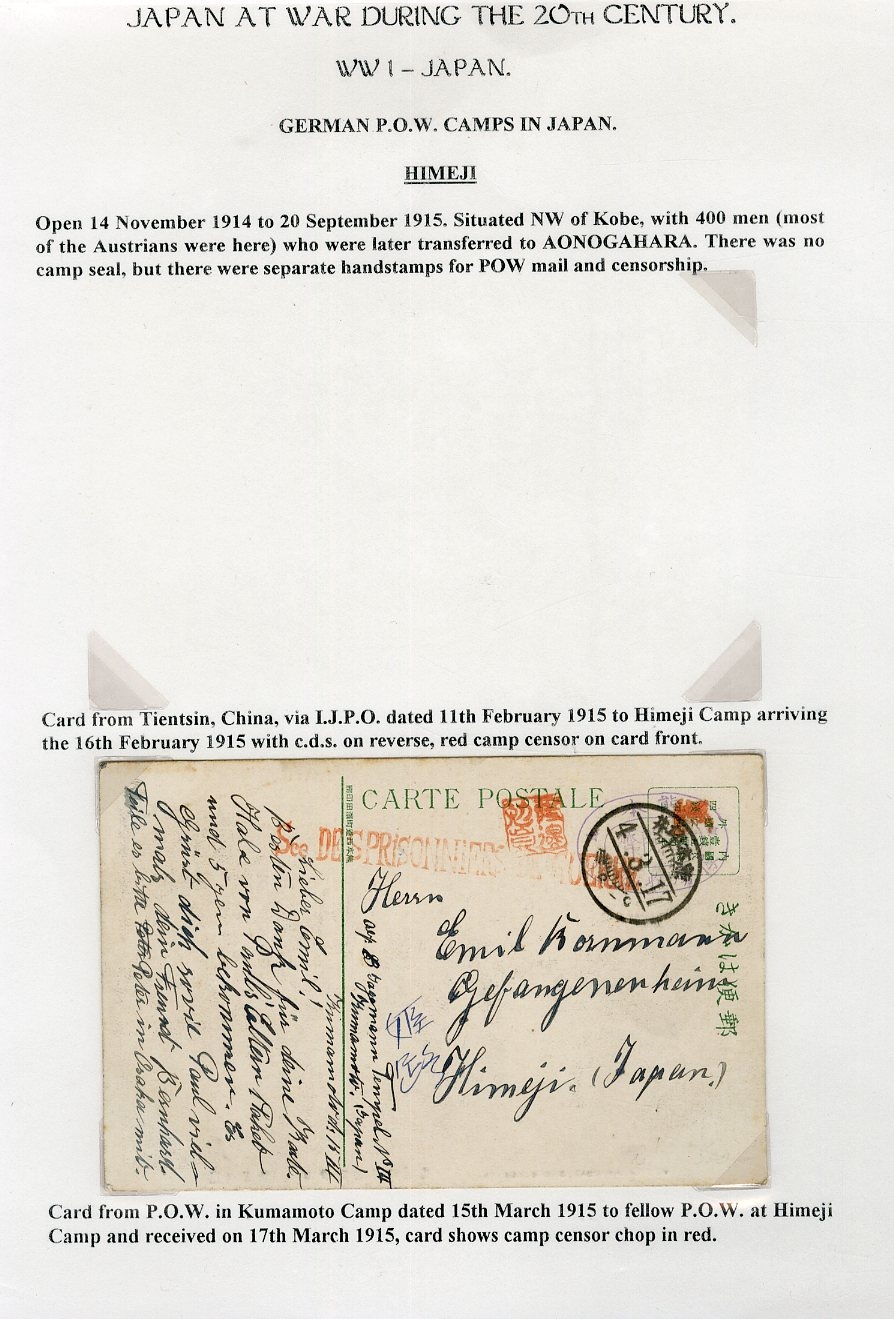 JAPAN AT WAR DURING THE 20TH CENTURY.
WW1 – JAPAN.
GERMAN P.O.W. CAMPS IN JAPAN.
HIMEJI
Open 14 November 1914 to 20 September 1915. Situated NW of Kobe, with 400 men (most
of the Austrians were here) who were later transferred to AONOGAHARA. There was no
camp seal, but there were separate handstamps for POW mail and censorship.
Card from Tientsin, China, via I.J.P.O. dated 11th February 1915 to Himeji Camp arriving
the 16th February 1915 with c.d.s. on reverse, red camp censor on card front.
CARTE POSTALE
See DES PRISONNIERS
4.3.17
きがは便郵
Herrn
Emil Bornmann
Gefangenenheim
Himeji. (Japan)
Tempel No III
Kumamoto. (Japan)
姫路
Kumamoto d. 15 III
Lieber Emil!
Besten Dank für deine Karte.
Habe von Paul's Eltern Paket
und 5 yen bekommen. Es
grüßt dich sowie Paul viel-
mals dein Freund Bernhard.
Teile es bitte Peter in Osaka mit.
Card from P.O.W. in Kumamoto Camp dated 15th March 1915 to fellow P.O.W. at Himeji
Camp and received on 17th March 1915, card shows camp censor chop in red.